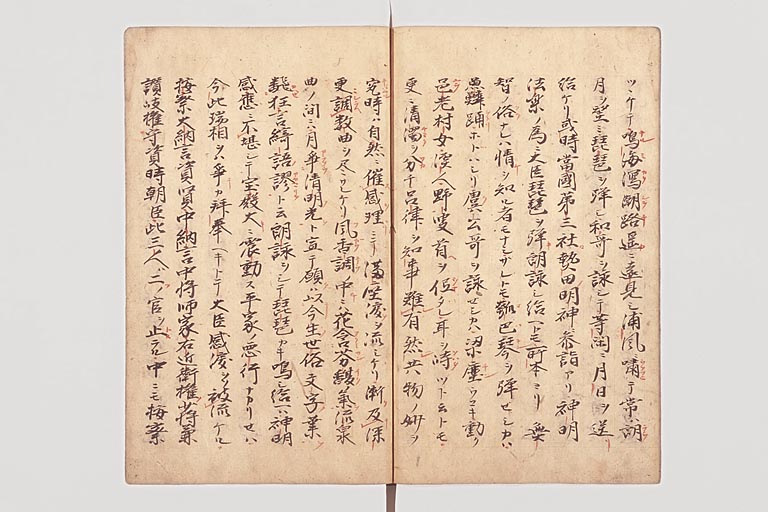 ツヽケテ鳴海瀉潮路遥ニ遠見シ浦風ニ嘯テ常ハ朗
月ヲ望ミ琵琶ヲ弾シ和哥ヲ詠シテ等閑ニ月日ヲ送
給ケリ或時當國第三社熱田明神参詣アリ神明
法楽ノ為ニ大臣琵琶ヲ弾朗詠シ給ヘトモ所本ヨリ無
智ノ俗ナレハ情ヲ知ル者モナシサレトモ瓠巴琴ヲ弾セシカハ
魚鱗踊ホトハシリ虞公哥ヲ詠セシカハ梁塵ウコキ動ク
邑老村女漁人野叟首ヲ低タレ耳ヲ峙ツト云トモ
更ニ清濁ヲ分チ呂律ヲ知事難有然共物ノ妙ヲ
究時ハ自然ニ催感理ニテ満座涙ヲ流シケリ漸及深
更調数曲ヲ尽シ給ケリ風香調ノ中ニハ花含芬馥氣流泉
曲ノ間ニハ月爭清明光ト宣テ願ハ以今生世俗文字業
狂言綺語謬ト云朗詠ヲシテ琵琶カキ鳴シ給ヘハ神明
感應ニ不堪シテ宝殿大ニ震動ス平家ノ悪行ナカリセハ
今此瑞相ヲハ爭カ拝奉ヘキトテ大臣感涙シ給被流ケル
按察大納言資賢中納言中将師家右近衛権少将兼
讃岐権守資時朝臣此三人ハ二ノ官ヲ止ラル中ニモ按察